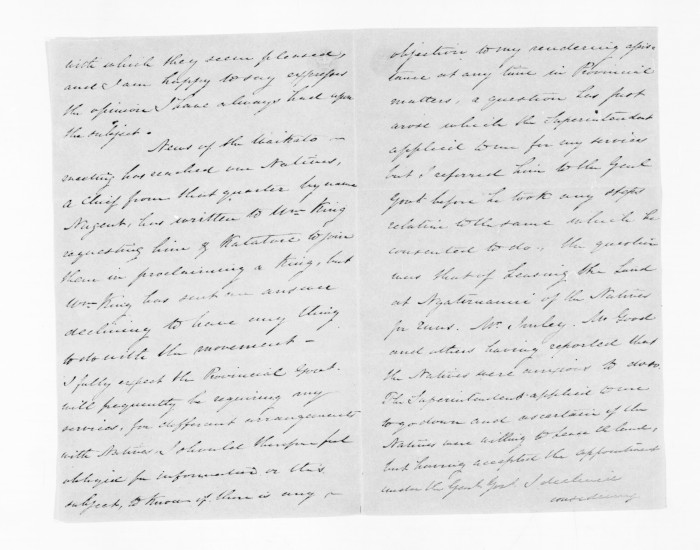 with which they seem pleased,
and I am happy to say express
the opinion I have always had upon
the subject.
News of the Waikato –
meeting has reached our Natives,
a Chief from that quarter by name
Nugent, has written to Wm King
requesting him & Katatore to join
them in proclaiming a King, but
Wm King has sent an answer
declining to have any thing
to do with the movement –
I fully expect the Provincial Govt.
will frequently be requiring my
services, for different arrangements
with Natives & I should therefore feel
obliged for information on this
subject, to know if there is any –
objection to my rendering assis-
tance at any time in Provincial
matters, a question has just
arose which the Superintendent
applied to me for my services
but I referred him to the Genl
Govt before he took any steps
relative to the same which he
consented to do, the question
was that of Leasing the Land
at Ngatimaru of the Natives
for runs. Mr Imlay, Mr Good
and others having reported that
the Natives were anxious to do so.
The Superintendent applied to me
to go down and ascertain if the
Natives were willing to lease the land,
but having accepted the appointment
under the Genl Govt I declined
considering